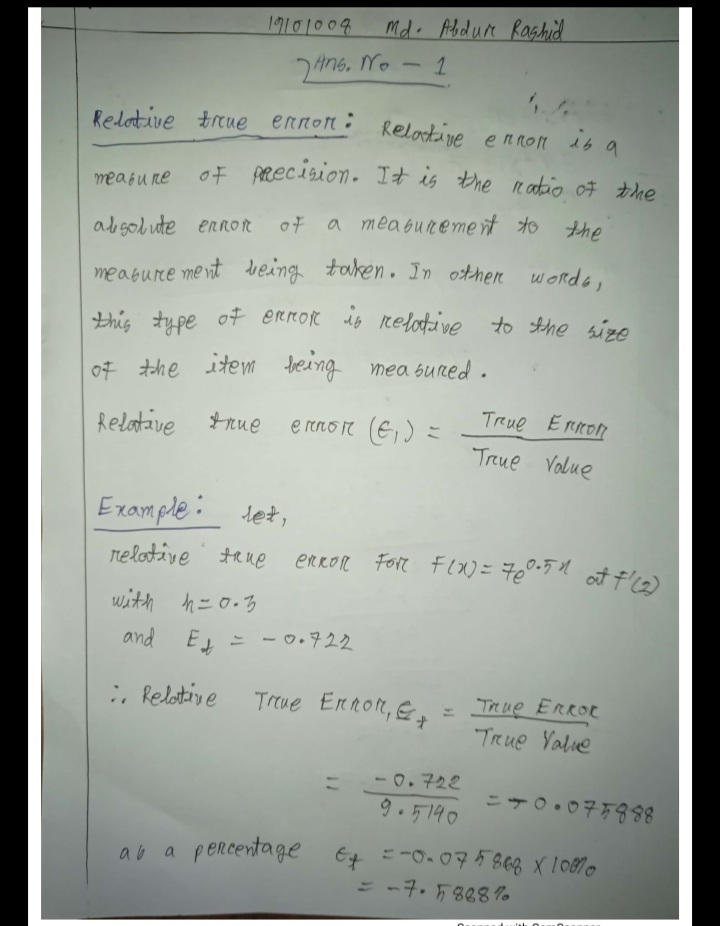 19101008 Md. Abdur Rashid
Ans. No - 1
Relative true error: Relative error is a
measure of precision. It is the ratio of the
absolute error of a measurement to the
measurement being taken. In other words,
this type of error is relative to the size
of the item being measured.
Relative true error (ϵ₁) = True Error / True Value
Example: let,
relative true error for F(x) = 7e^0.5x at F'(2)
with h = 0.3
and E_t = -0.722
∴ Relative True Error, ϵ_t = True Error / True Value
= -0.722 / 9.5140 = -0.075888
as a percentage ϵ_t = -0.075888 × 100%
= -7.5888%